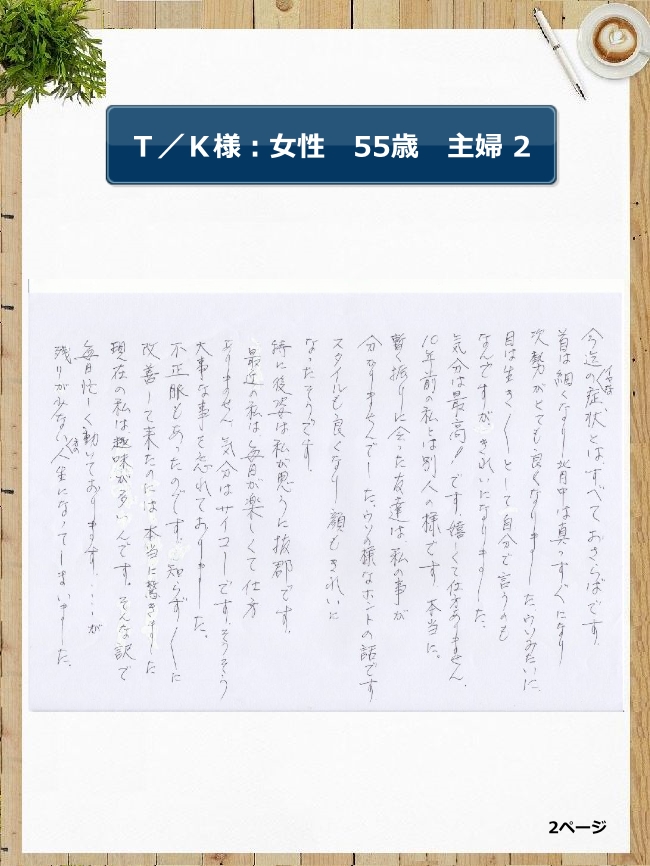 T／K様：女性　55歳　主婦 2
今迄のイヤな症状とは、すべておさらばです。
首は細くなり、背中は真っすぐになり
姿勢がとても良くなりました。ウソみたいに、
目は生き〳〵として自分で言うのも
なんですが、きれいになりました。
気分は最高!!です。嬉しくて仕方ありません。
10年前の私とは別人の様です。本当に。
暫く振りに会った友達は、私の事が
分かりませんでした。ウソの様なホントの話です
スタイルも良くなり、顔もきれいに
なったそうです。
特に後姿は私が思うに抜群です。
最近の私は、毎日が楽しくて仕方
ありません。気分はサイコーです。そうそう
大事な事を忘れておりました。
不正脈もあったのです。知らず〳〵に
改善して来たのには、本当に驚きました
現在の私は趣味が多いんです。そんな訳で
毎日忙しく動いております。・・・・が
残りが少ない人生になってしまいました。
2ページ